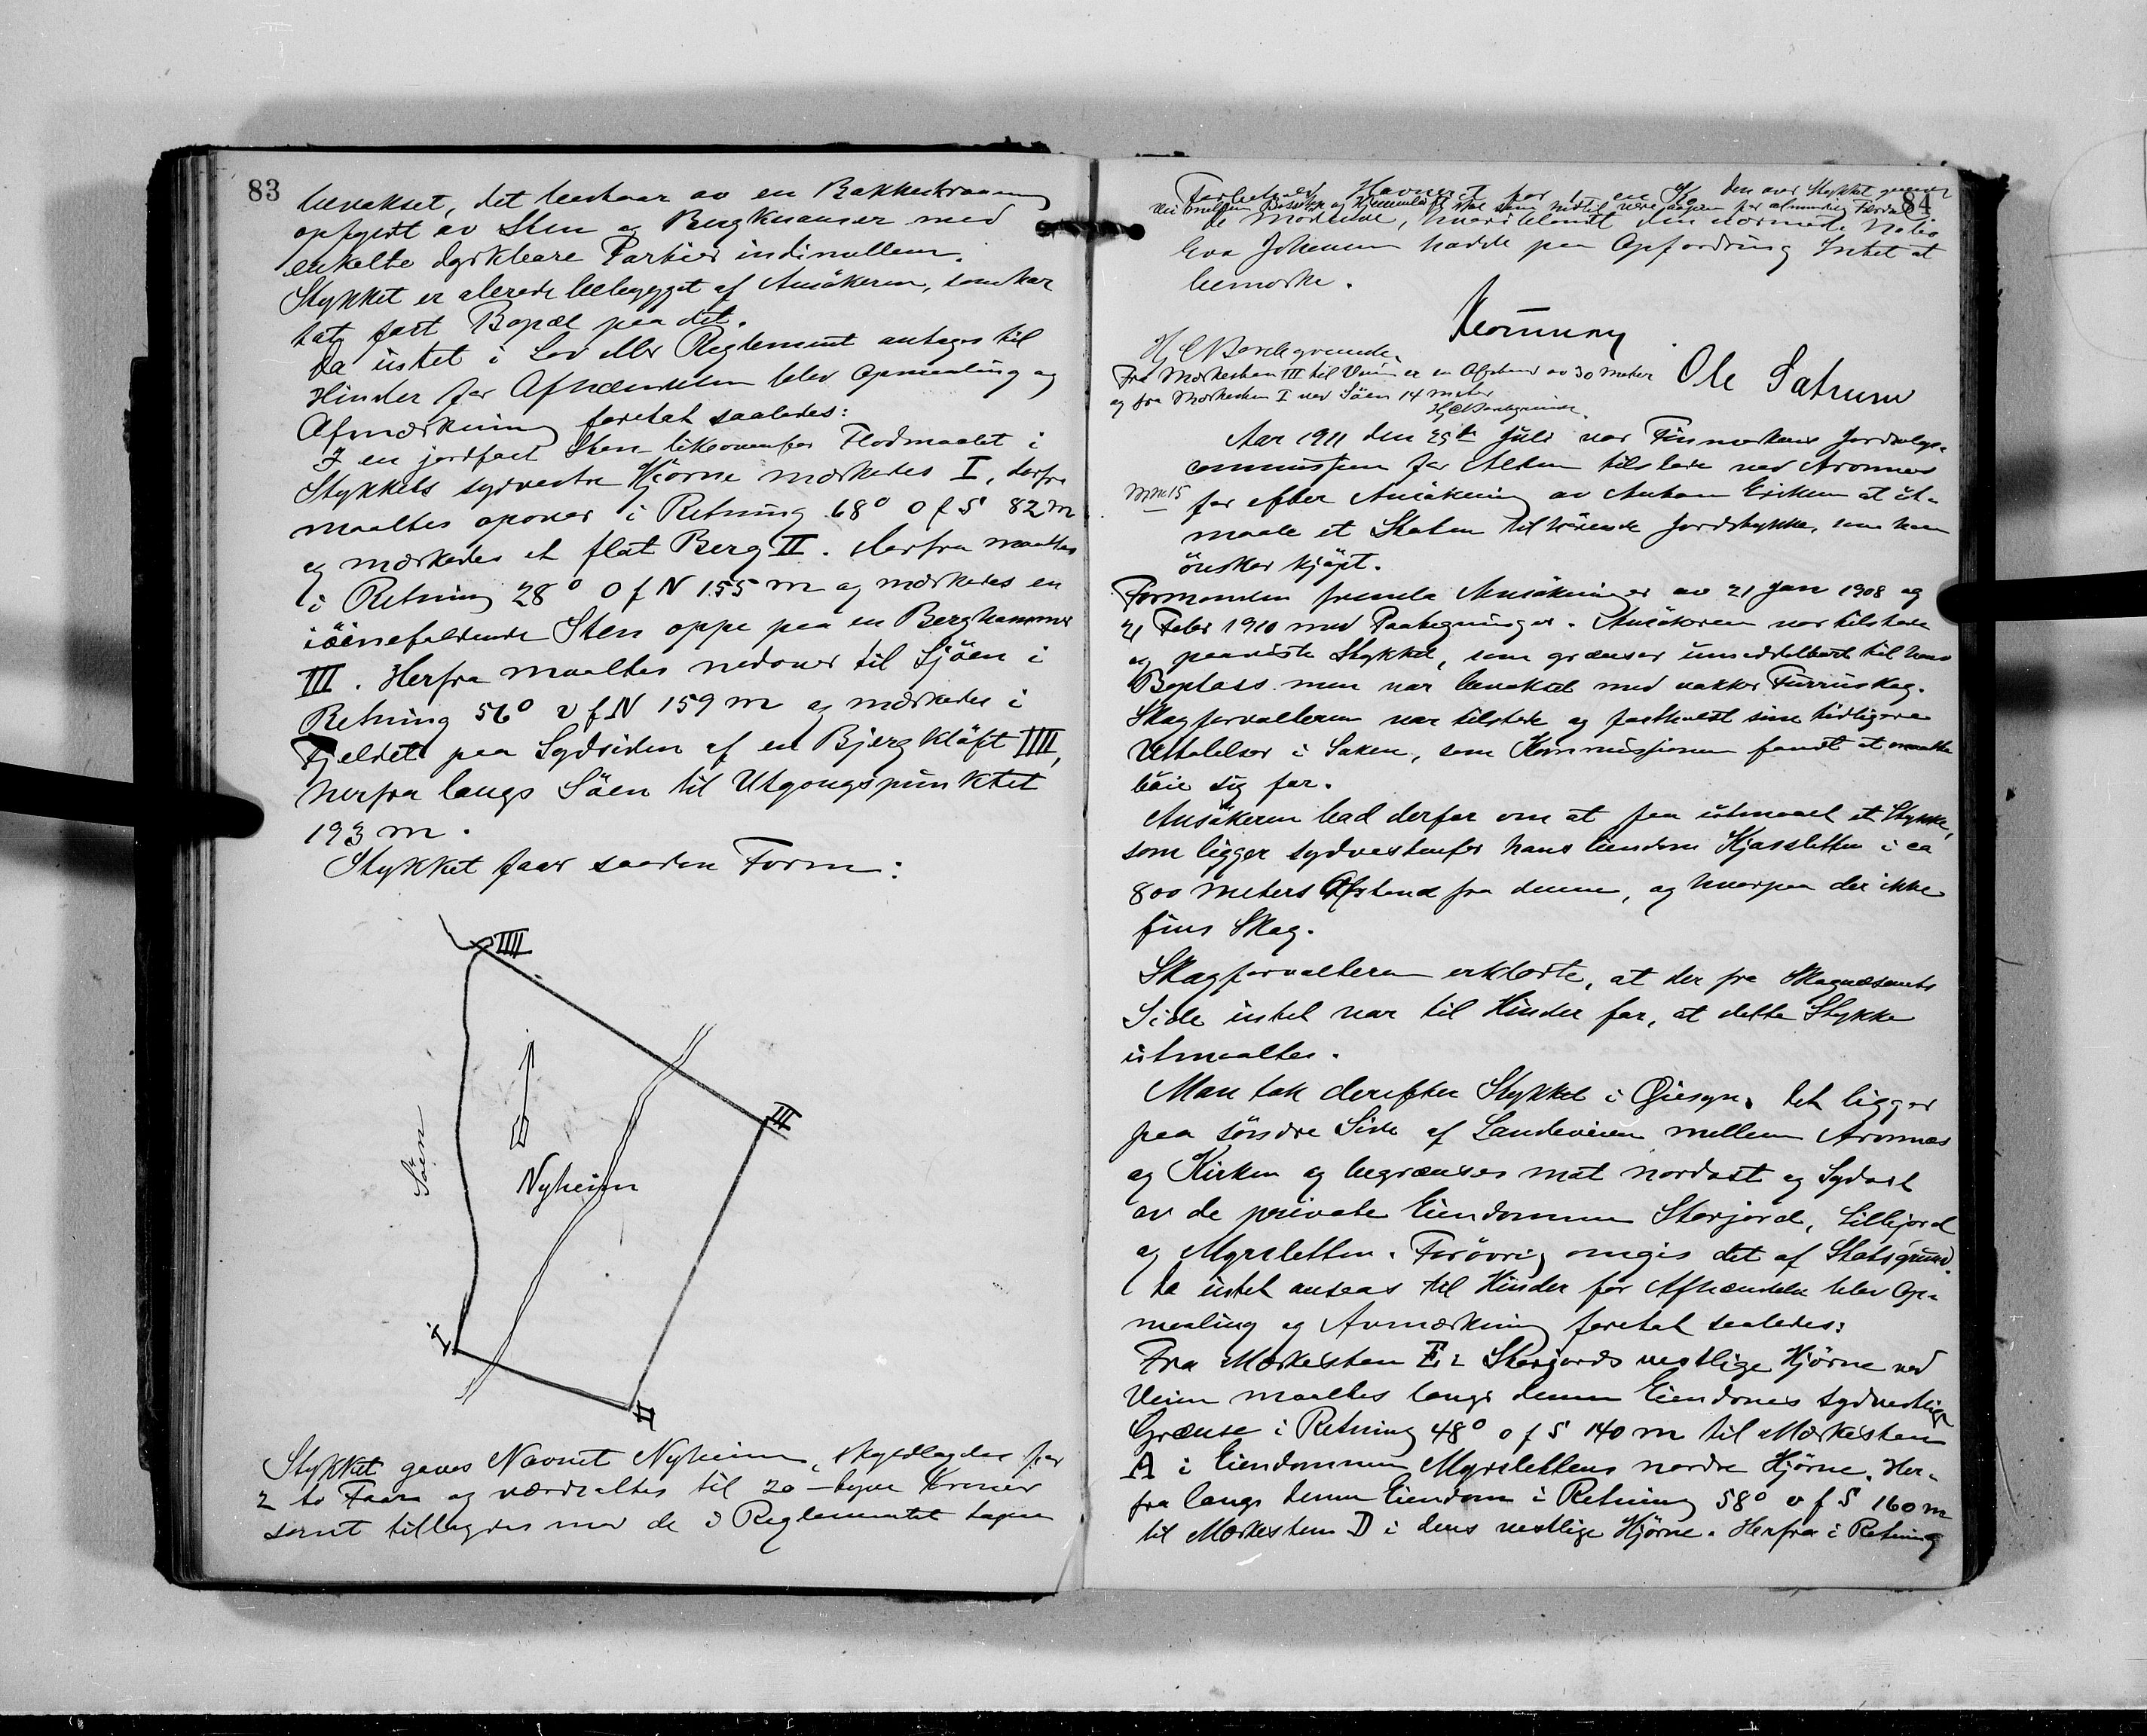 83
bevokset, det bestaar av en Bakkeskraaning
opfyldt av Sten og Bergknauser med
enkelte dyrkbare Partier indimellem.
Stykket er alerede bebygget af Ansökeren, som har
tat fast Bopæl paa det.
Da intet i Lov eller Reglement antages til
Hinder for Afhændelsen blev Opmaaling og
Afmærkning foretat saaledes:
I en jordfast Sten likeovenfor Flodmaalet i
Stykkets sydvestre Hjörne mærkedes I, derfra
maaltes opover i Retning 68° O f S 82 m
og mærkedes et flat Berg II. Herfra maaltes
i Retning 28° O f N 155 m og mærkedes en
iöinefaldende Sten oppe paa en Berghammer
III. Herfra maaltes nedover til Sjöen i
Retning 56° v f N 159 m og mærkedes i
Fjeldet paa Sydsiden af en Bjergkløft IIII,
herfra langs Söen til Utgangspunktet
193 m.
Stykket faar saadan Form:
IIII
III
Söen
Nyheim
I
II
Stykket gaves Navnet Nyheim, skyldlagdes for
2 to Faar og værdsattes til 20 - tyve Kroner
samt tillagdes med de i Reglementet tagne
84
Forbehold Havneret for en Ko den over Stykket gaaende
Vei mellem Bosekop og skal som hidtil være aapen for almindelig Færdsel
de Mødende, hvoriblandt den nærmeste Nabo
Eva Johansen havde paa Opfordring Intet at
bemærke.
Ole Satrum
Fra Mærkesten III til Veien er en Afstand av 30 meter
og fra Mærkesten I ved Söen 14 meter
Aar 1911 den 25de Juli var Finmarkens Jordsalgs-
commission for Alten tilstede ved Aronnes
for efter Ansökning av Anton Eriksen at ut-
maale et Staten tilhörende Jordstykke, som han
önsker kjöpt.
Formanden fremla Ansökninger av 21 Jan 1908 og
21 Febr 1910 med Paategninger. Ansökeren var tilstede
og paaviste Stykket, som grænser umiddelbart til hans
Boplass men var bevokset med vakker Furruskog.
Skogforvalteren var tilstede og fastholdt sine tidligere
Uttalelser i Saken, som Kommissionen fandt at maatte
böie sig for.
Ansökeren bad derfor om at faa utmaalt et Stykke,
som ligger sydvestenfor hans Eiendom Kjosletten i ca
800 meters Afstand fra denne, og hvorpaa der ikke
fins Skog.
Skogforvalteren erklærte, at der fra Skogvæsenets
Side intet var til Hinder for, at dette Stykke
utmaaltes.
Man tok derefter Stykket i Øiesyn. Det ligger
paa söndre Side af Landeveien mellem Aronnes
og Kirken og begrænses mot nordost og Sydost
av de private Eiendomme Storjord, Lillejord
og Myrsletten. Forövrig omgis det af Statsgrund.
Da intet ansaas til Hinder for Afhændelse blev Op-
maaling og Avmærkning foretat saaledes:
Fra Mærkesten E i Storjords vestlige Hjörne ved
Veien maaltes langs denne Eiendoms sydvestlige
Grænse i Retning 48° o f S 140 m til Mærkesten
A i Eiendommen Myrslettens nordre Hjörne. Her-
fra langs denne Eiendom i Retning 58° v f S 160 m
til Mærkesten D i dens vestlige Hjörne. Herfra i Retning